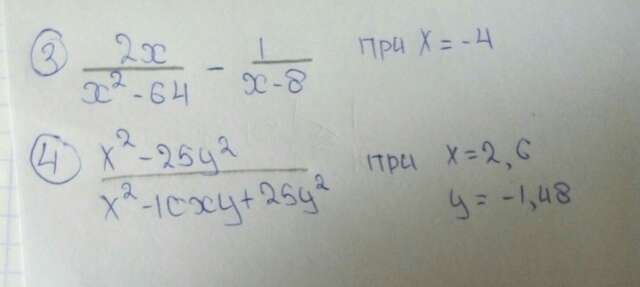 ③ 2x/(x² - 64) - 1/(x - 8) при x = -4
④ (x² - 25y²)/(x² - 10xy + 25y²) при x = 2,6
y = -1,48